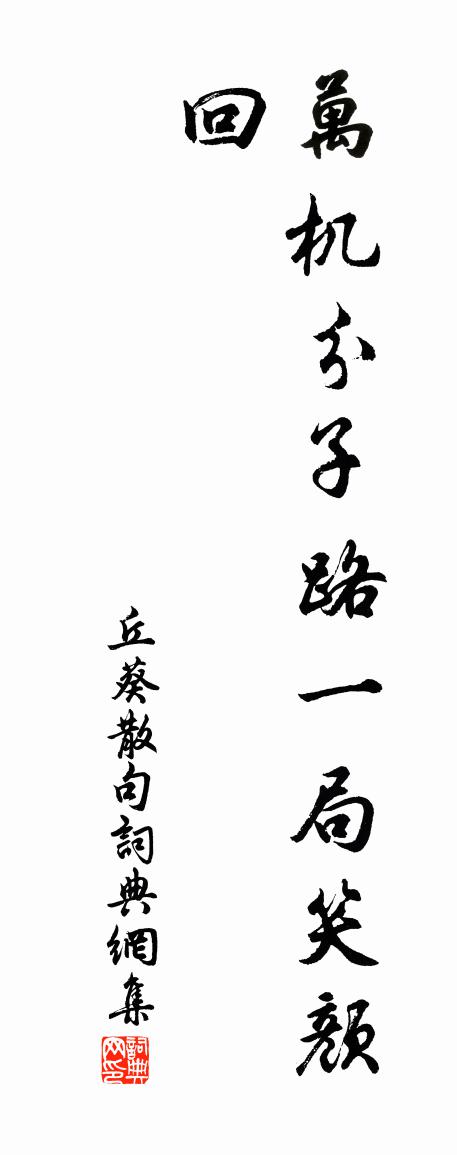 萬机分子路一局笑顔
回
丘葵散句詞典網集
詞典网印